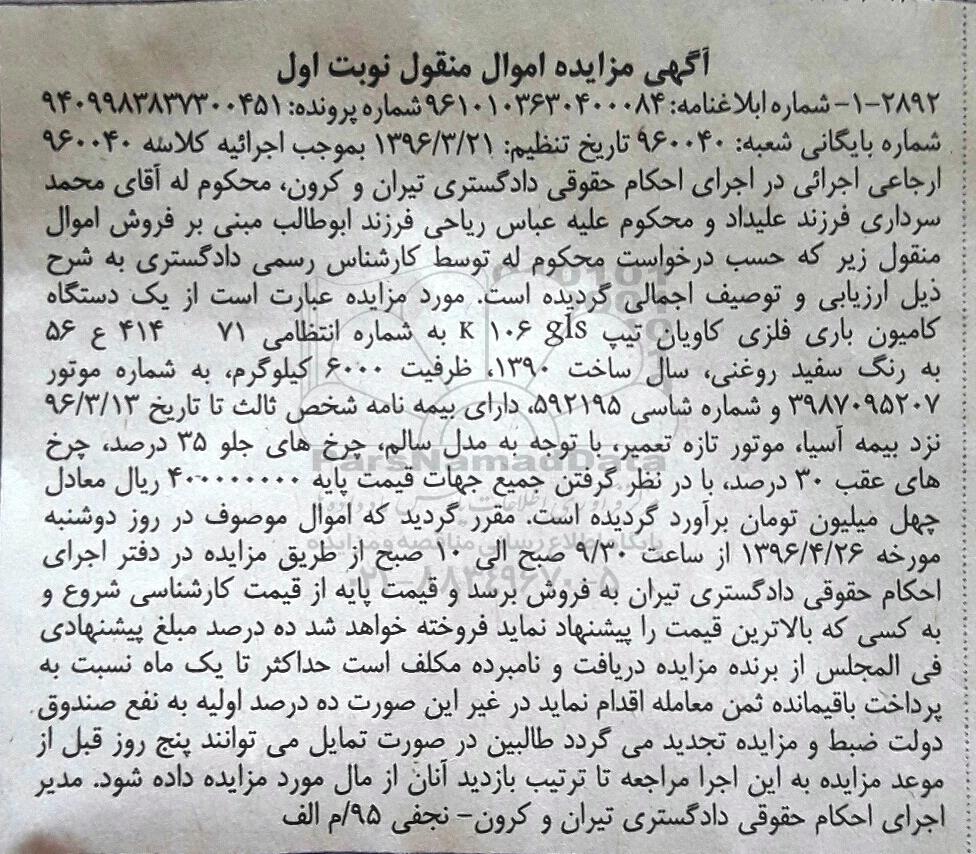 آگهی مزایده اموال منقول نوبت اول
۱-۲۸۹۲- شماره ابلاغنامه: ۹۶۱۰۱۰۳۶۳۰۴۰۰۰۸۴ شماره پرونده: ۹۴۰۹۹۸۳۸۳۷۳۰۰۴۵۱
شماره بایگانی شعبه: ۹۶۰۰۴۰ تاریخ تنظیم: ۱۳۹۶/۳/۲۱ بموجب اجرائیه کلاسه ۹۶۰۰۴۰
ارجاعی اجرائی در اجرای احکام حقوقی دادگستری تیران و کرون، محکوم له آقای محمد
سرداری فرزند علیداد و محکوم علیه عباس ریاحی فرزند ابوطالب مبنی بر فروش اموال
منقول زیر که حسب درخواست محکوم له توسط کارشناس رسمی دادگستری به شرح
ذیل ارزیابی و توصیف اجمالی گردیده است. مورد مزایده عبارت است از یک دستگاه
کامیون باری فلزی کاویان تیپ K ۱۰۶ gls به شماره انتظامی ۷۱ ۴۱۴ ع ۵۶
به رنگ سفید روغنی، سال ساخت ۱۳۹۰، ظرفیت ۶۰۰۰ کیلوگرم، به شماره موتور
۳۹۸۷۰۹۵۲۰۷ و شماره شاسی ۵۹۲۱۹۵، دارای بیمه نامه شخص ثالث تا تاریخ ۹۶/۳/۱۳
نزد بیمه آسیا، موتور تازه تعمیر، با توجه به مدل سالم، چرخ های جلو ۳۵ درصد، چرخ
های عقب ۳۰ درصد، با در نظر گرفتن جمیع جهات قیمت پایه ۴۰۰۰۰۰۰۰۰ ریال معادل
چهل میلیون تومان برآورد گردیده است. مقرر گردید که اموال موصوف در روز دوشنبه
مورخه ۱۳۹۶/۴/۲۶ از ساعت ۹/۳۰ صبح الی ۱۰ صبح از طریق مزایده در دفتر اجرای
احکام حقوقی دادگستری تیران به فروش برسد و قیمت پایه از قیمت کارشناسی شروع و
به کسی که بالاترین قیمت را پیشنهاد نماید فروخته خواهد شد ده درصد مبلغ پیشنهادی
فی المجلس از برنده مزایده دریافت و نامبرده مکلف است حداکثر تا یک ماه نسبت به
پرداخت باقیمانده ثمن معامله اقدام نماید در غیر این صورت ده درصد اولیه به نفع صندوق
دولت ضبط و مزایده تجدید می گردد طالبین در صورت تمایل می توانند پنج روز قبل از
موعد مزایده به این اجرا مراجعه تا ترتیب بازدید آنان از مال مورد مزایده داده شود. مدیر
اجرای احکام حقوقی دادگستری تیران و کرون- نجفی ۹۵/م الف
ParsNamadData
پایگاه اطلاع رسانی مناقصه و مزایده
۰۲۱-۸۸۳۴۹۶۷۰-۵